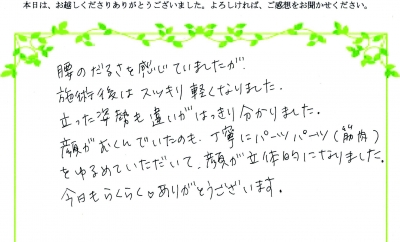 本日は、お越しくださりありがとうございました。よろしければ、ご感想をお聞かせください。
腰のだるさを感じていましたが
施術後はスッキリ軽くなりました.
立った姿勢も違いがはっきり分かりました.
顔がむくんでいたのも、丁寧にパーツパーツ(筋肉)
をゆるめていただいて、顔が立体的になりました。
今日もらくらく♡ありがとうございます。